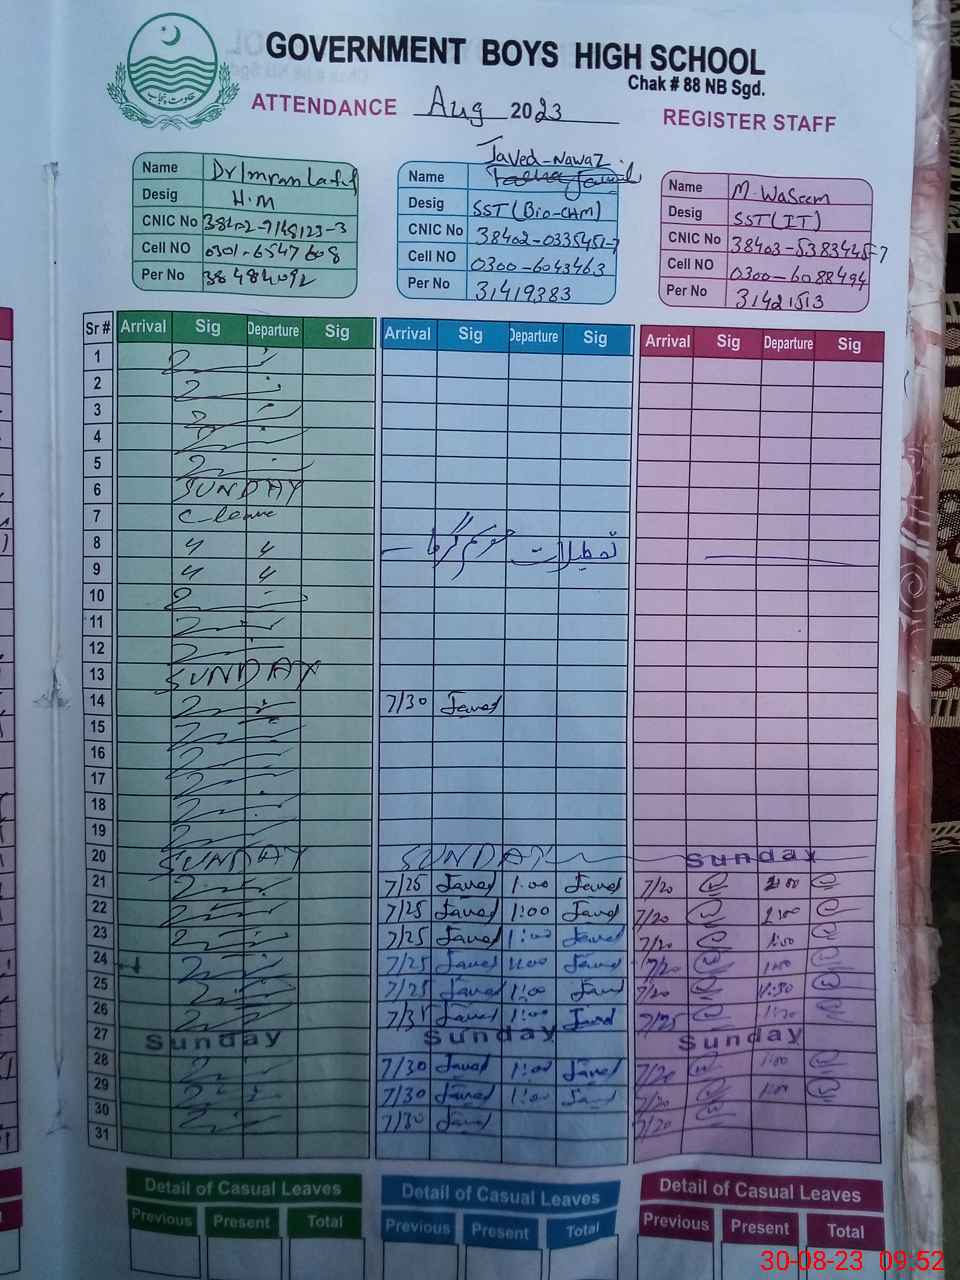 GOVERNMENT BOYS HIGH SCHOOL
Chak # 88 NB Sgd.
ATTENDANCE Aug 2023 REGISTER STAFF
Name Dr Imran Latif
Desig H.M
CNIC No
Cell NO 0301-6547608
Per No
Javed-Nawaz
Name
Desig SST (Bio-CHM)
CNIC No 38402-0335451-7
Cell NO 0300-6043463
Per No 31419383
Name M. WaSeem
Desig SST (IT)
CNIC No 38403-5383445-7
Cell NO 0300-6088494
Per No 31421513
Sr # Arrival Sig Departure Sig Arrival Sig Departure Sig Arrival Sig Departure Sig
1
2
3
4
5
6 SUNDAY
7 C-leave
8 〃 〃 تعطیلات موسم گرما
9 〃 〃
10
11
12
13 SUNDAY
14 7/30 Javed
15
16
17
18
19
20 SUNDAY SUNDAY Sunday
21 7/25 Javed 1:00 Javed 7/20
22 7/25 Javed 1:00 Javed 7/20
23 7/25 Javed 1:00 Javed 7/20
24 7/25 Javed 1:00 Javed 7/20
25 7/25 Javed 1:00 Javed 7/20
26 Javed 1:00 Javed 7/25
27 Sunday Sunday Sunday
28 7/30 Javed 1:00 Javed 7/20
29 7/30 Javed 1:00 Javed 7/20
30 7/30 Javed 7/20
31
Detail of Casual Leaves Detail of Casual Leaves Detail of Casual Leaves
Previous Present Total Previous Present Total Previous Present Total
30-08-23 09:52